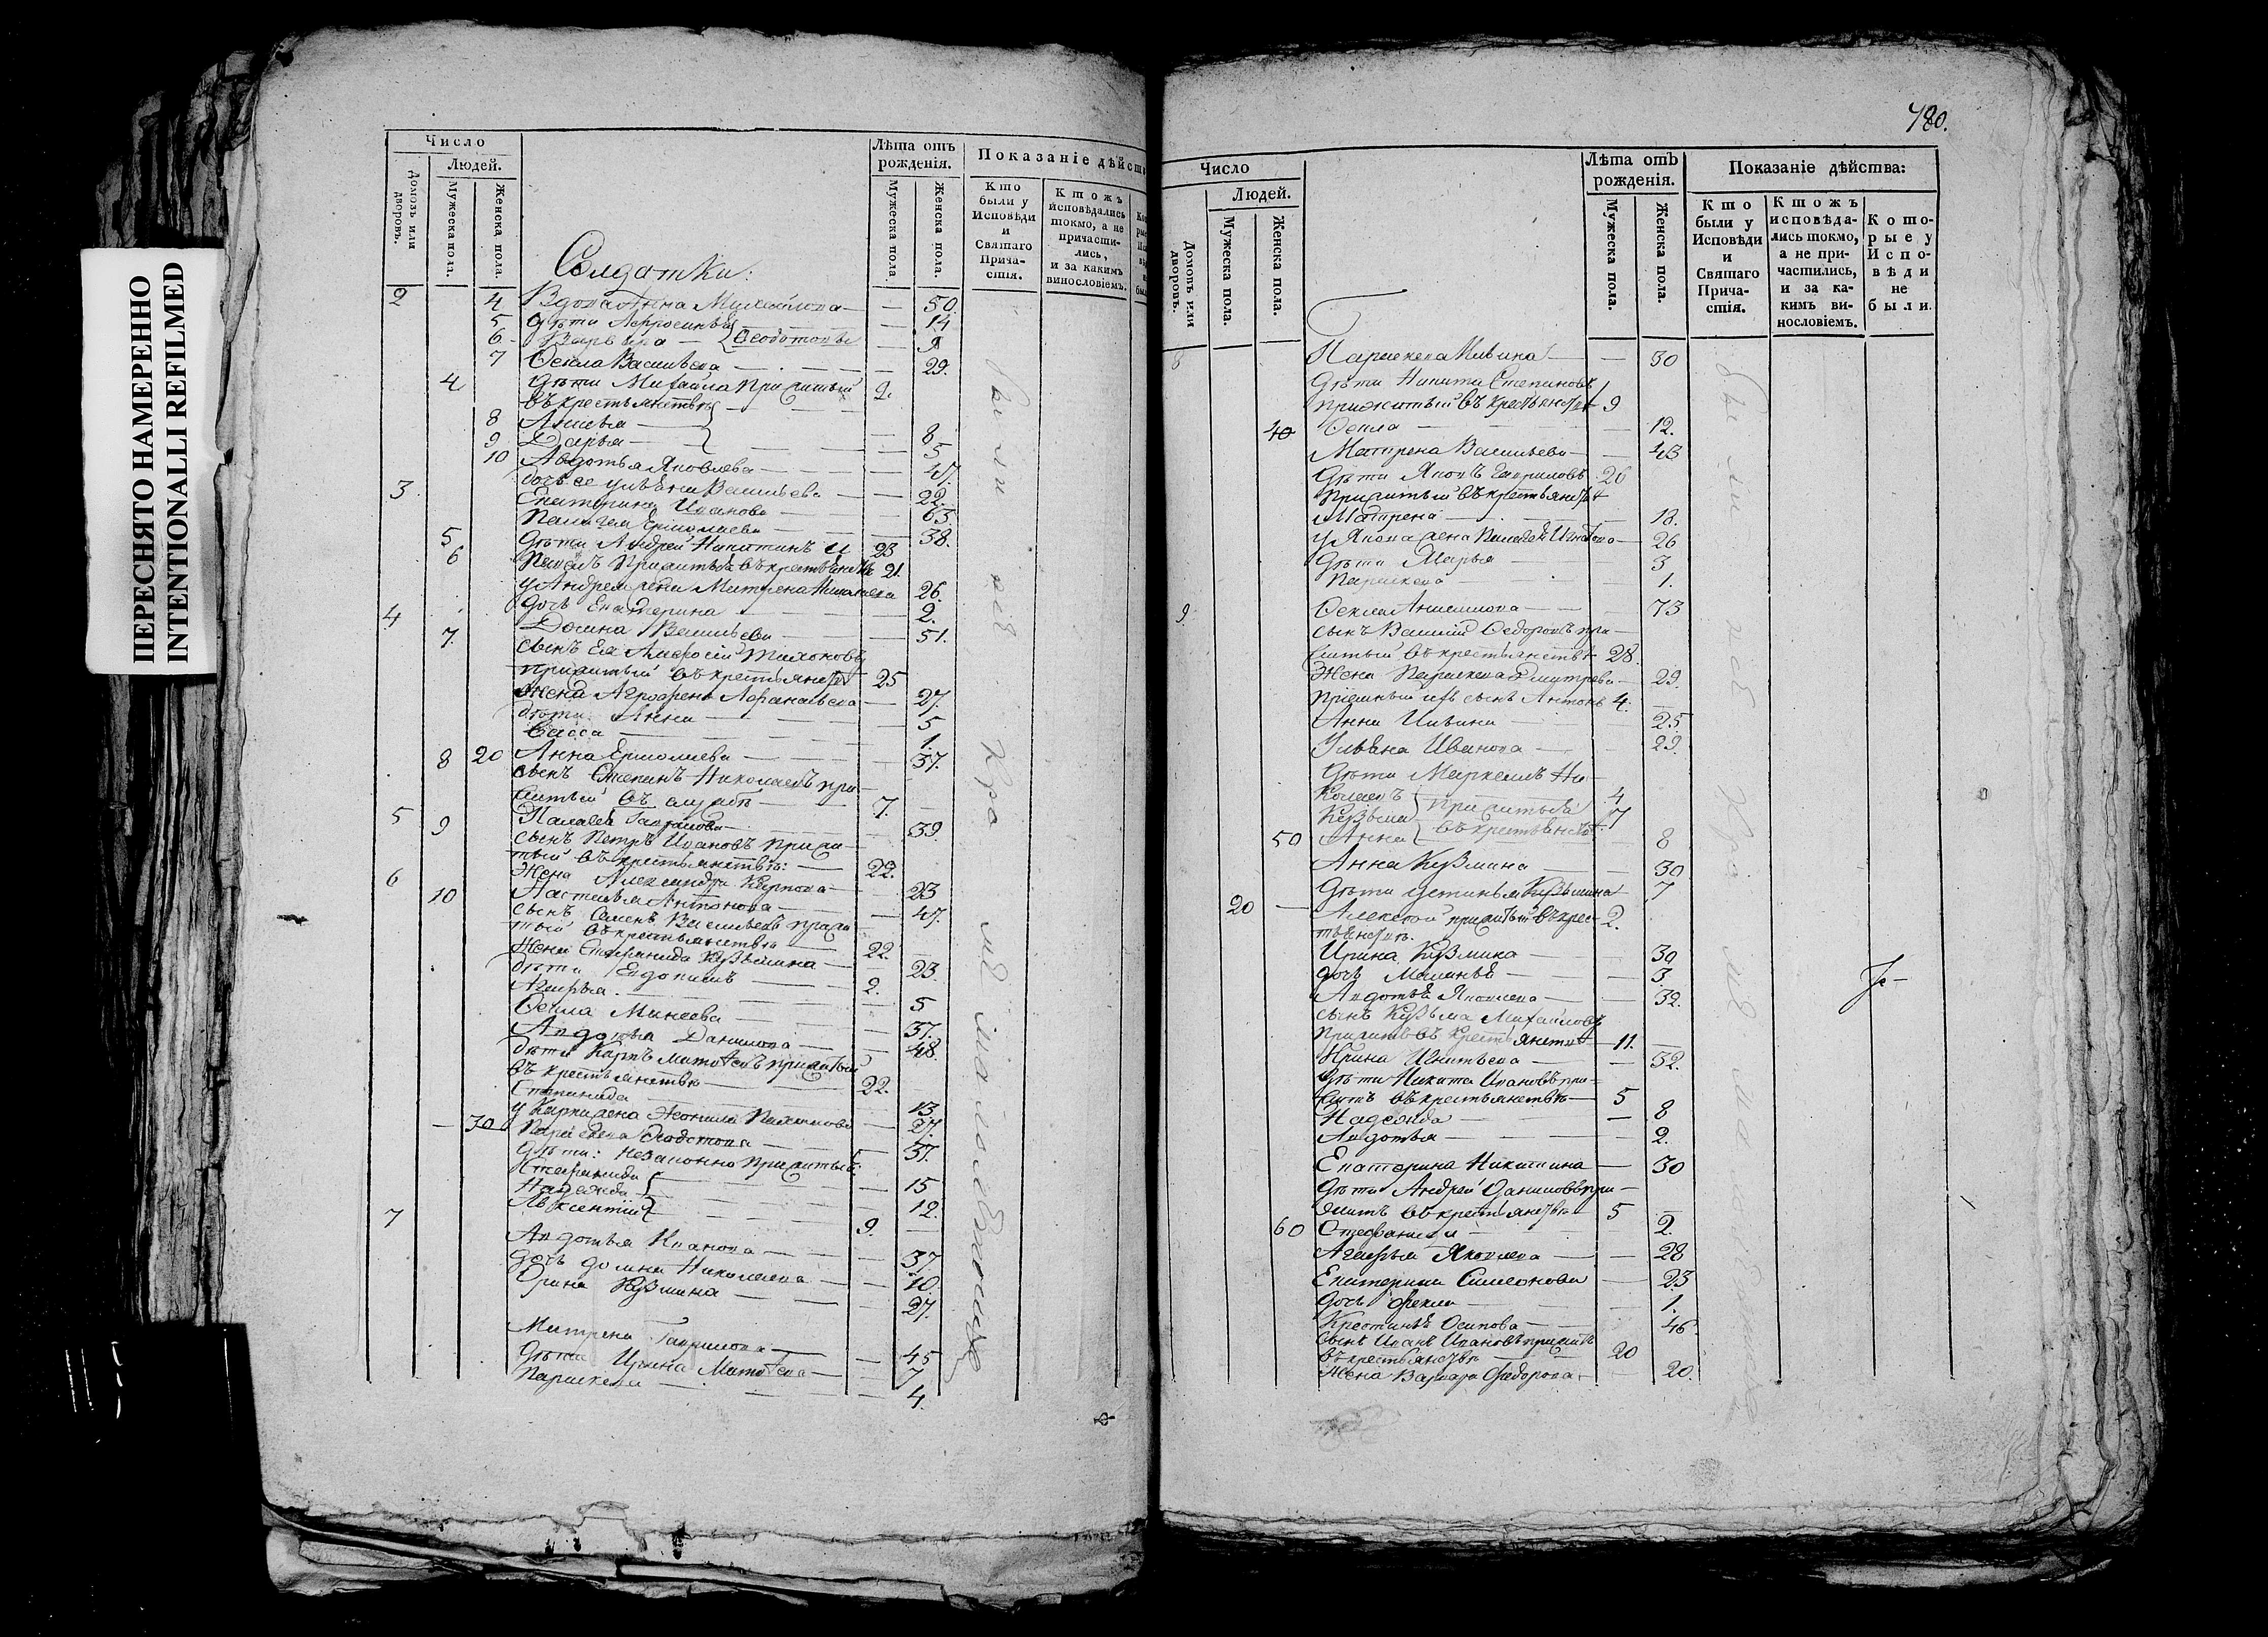 ПЕРЕСНЯТО НАМЕРЕННО
INTENTIONALLI REFILMED
Число
Людей.
Домовъ или дворовъ.
Мужеска пола.
Женска пола.
Лѣта отъ рожденія.
Мужеска пола.
Женска пола.
Показаніе дѣйств
Кто были у Исповѣди и Святаго Прича-стія.
Ктожъ исповѣдались токмо, а не причасти-лись, и за какимъ винословіемъ.
Солдатки:
2 4 Вдова Анна Михайлова — 50.
5 Дѣти Афросинья — 14
6 Варвара — Ѳеодотовы —
7 Ѳекла Васильева — 29.
4 Дѣти Михайла прижитый 2.
въ крестьянствѣ
8 Анисья — 8
9 Дарья — 5
10 Авдотья Яковлева — 47.
дочь ее Ульяна Васильева — 22.
3 Екатерина Иванова — 63.
Пелагея Ермолаева — 38.
5 Дѣти Андрей Никитинъ и 23
6 прижитыя въ крестьянствѣ 21.
у Андрея жена Матрена Николаева 26.
дочь Екатерина — 2.
4 Домна Васильева — 51.
7. сынъ ея Амвросій Тихоновъ
прижитый въ крестьянствѣ 25
жена Агрофена Афанасьева — 27.
дѣти Анна — 5
Васса — 1.
8 20 Анна Ермолаева — 37.
сынъ Степанъ Николаевъ при-
житый въ службѣ — 7.
5 Пелагея Гаврилова — 39.
9 сынъ Петръ Ивановъ прижи-
тый въ крестьянствѣ: — 22.
Жена Александра Карпова — 23
6 Настасья Антонова — 47.
10 сынъ Семенъ Васильевъ прижи
тый въ крестьянствѣ — 22.
Жена Степанида Кузьмина — 23.
дѣти Евдокимъ — 2.
Агафья — 5
Ѳекла Минеева — 37.
Авдотья Данилова — 48.
дѣти Карпъ Матвеевъ прижитый
въ крестьянствѣ — 22.
Степанида — 13
у Карпа жена — 27.
30 Параскева Ѳедотова — 37.
Дѣти: незаконно прижитые
Степанида — 15
Надежда — 12.
Авксентій — 9.
7 Авдотья Иванова — 37.
дочь Домна Николаева — 10.
Ирина Кузмина — 27.
Матрена Гаврилова — 45
Дѣти Ирина Матвеева — 7
Параскева — 4.
были
780.
Число
Людей.
Домовъ или дворовъ.
Мужеска пола.
Женска пола.
Лѣта отъ рожденія.
Мужеска пола.
Женска пола.
Показаніе дѣйства:
Кто были у Исповѣди и Святаго Прича-стія.
Ктожъ исповѣда-лись токмо, а не при-частились, и за ка-кимъ ви-нословіемъ.
Кото-рые у Испо-вѣди не были.
8 Параскева Ильина — 30
Дѣти Никита Степановъ
прижитый въ крестьянствѣ 9
40 Ѳекла — 12.
Матрена Васильева — 43
Дѣти Яковъ Гавриловъ 26
прижитый въ крестьянствѣ
Матрена — 18.
у Якова жена Пелагея Игнатьева — 26
Дѣти Марья — 3
Параскева — 1.
9 Ѳекла Анисимова — 73
сынъ Василій Ѳедоровъ при-
житый въ крестьянствѣ 28.
Жена Параскева Дмитрева — 29.
пріемный ихъ сынъ Антонъ 4.
Анна Ильина — 25
Ульяна Иванова — 29.
Дѣти Маркеллъ Ни-
колаевъ 4
Кузьма прижитыя 7
50 Анна въ крестьянствѣ 8
Анна Кузмина — 30
Дѣти Устинья Кузьмина — 7
20 Алексѣй прижитый въ крес- 2.
тьянствѣ.
Ирина Кузмина — 30
дочь Маланья — 3.
Авдотья Яковлева — 32.
сынъ Кузьма Михайловъ
прижитъ въ крестьянствѣ — 11.
Ирина Игнатьева — 32.
Дѣти Никита Ивановъ при-
житъ въ крестьянствѣ — 5
Надежда — 8
Авдотья — 2.
Екатерина Никитина — 30
Дѣти Андрей Даниловъ при-
житъ въ крестьянствѣ — 5
60 Стефанида — 2.
Агафья Яковлева — 28
Екатерина Симеонова — 23
дочь Фекла — 1.
Крестинья Осипова — 46.
сынъ Иванъ Ивановъ прижитъ
въ крестьянствѣ 20
Жена Варвара Федорова — 20.
были